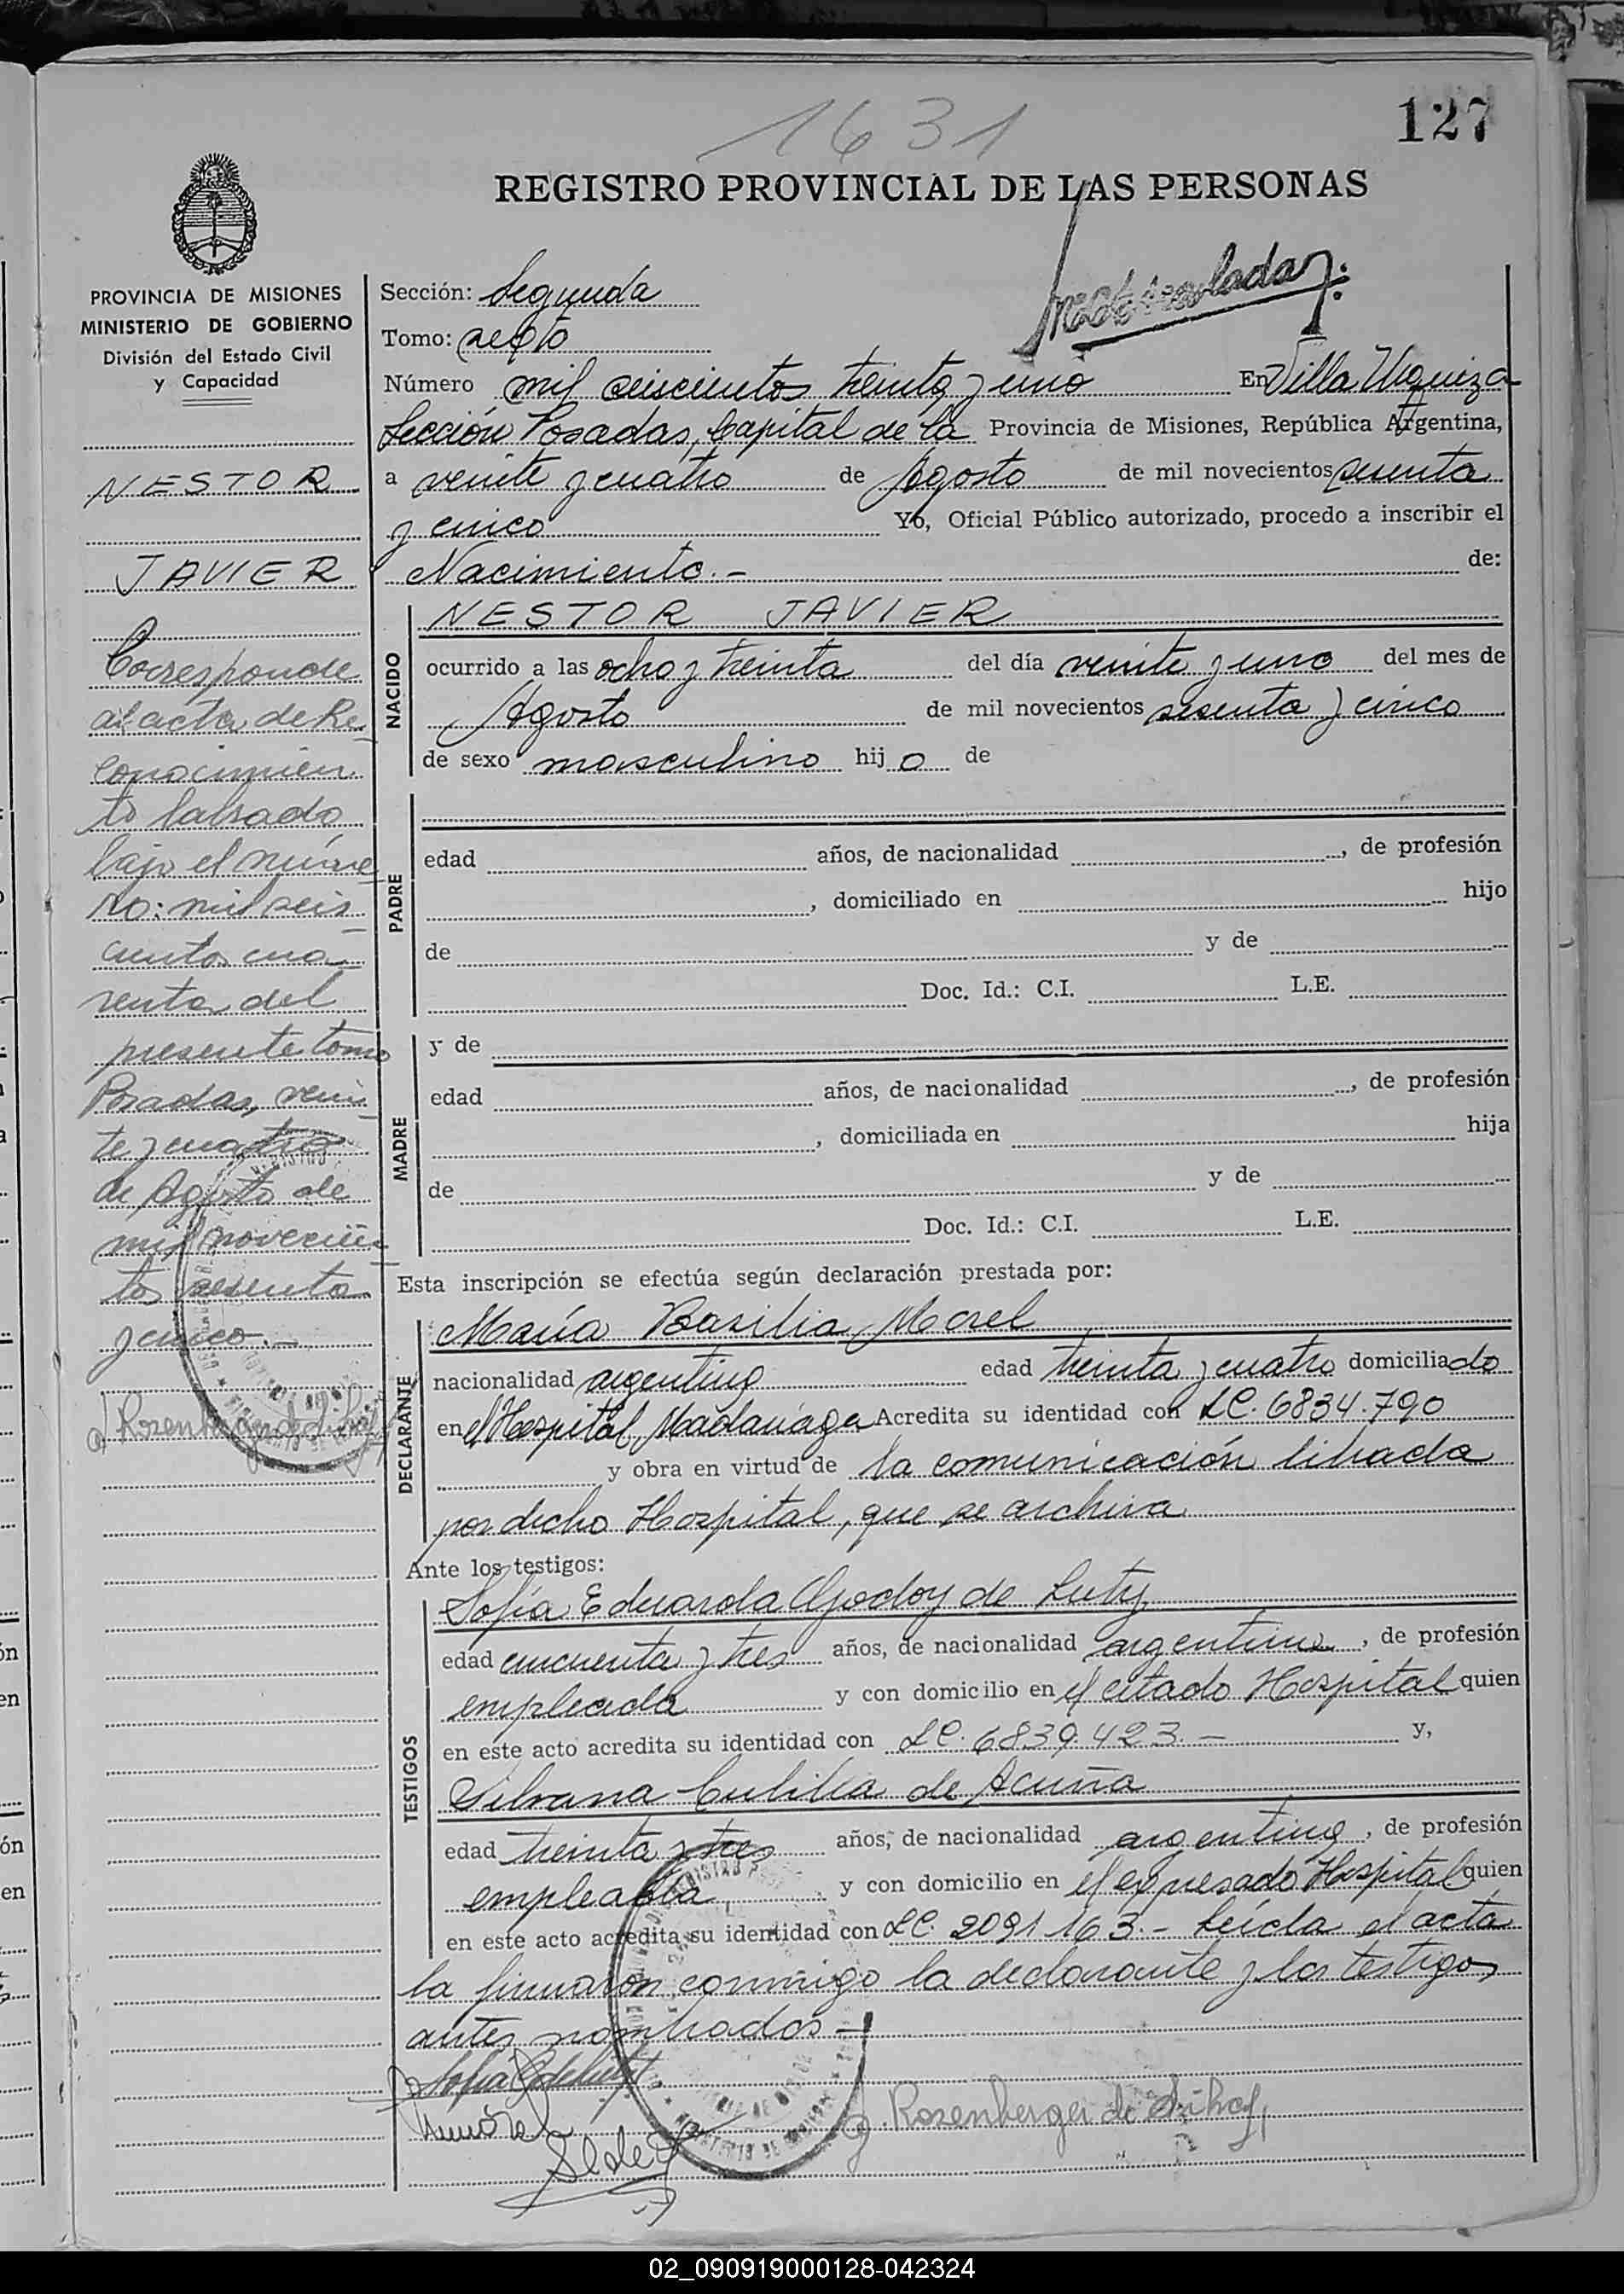 1631
127
REGISTRO PROVINCIAL DE LAS PERSONAS
PROVINCIA DE MISIONES
MINISTERIO DE GOBIERNO
División del Estado Civil
y Capacidad
NESTOR
JAVIER
Corresponde
al acta de Re
conocimien
to labrado
bajo el núme
ro: mil seis
cientos cua
renta del
presente tomo
Posadas, vein
te y cuatro
de Agosto de
mil novecien
tos sesenta
y cinco.-
Sección: Segunda
Tomo: sexto
Número mil seiscientos treinta y uno En Villa Urquiza
Sección Posadas, Capital de la Provincia de Misiones, República Argentina,
a veinte y cuatro de Agosto de mil novecientos sesenta
y cinco Yo, Oficial Público autorizado, procedo a inscribir el
Nacimiento.- de:
NACIDO
NESTOR JAVIER
ocurrido a las ocho y treinta del día veinte y uno del mes de
Agosto de mil novecientos sesenta y cinco
de sexo masculino hijo de
PADRE
edad años, de nacionalidad , de profesión
, domiciliado en hijo
de y de
Doc. Id.: C.I. L.E.
MADRE
y de
edad años, de nacionalidad , de profesión
, domiciliada en hija
de y de
Doc. Id.: C.I. L.E.
Esta inscripción se efectúa según declaración prestada por:
DECLARANTE
María Basilia Morel
nacionalidad argentina edad treinta y cuatro domiciliado
en el Hospital Madariaga Acredita su identidad con LC. 6834.790
y obra en virtud de la comunicación librada
por dicho Hospital, que se archiva
Ante los testigos:
TESTIGOS
Sofía Eduarda Godoy de Luty
edad cincuenta y tres años, de nacionalidad argentina, de profesión
empleada y con domicilio en el citado Hospital quien
en este acto acredita su identidad con LC. 6839.423.- y,
Silvana de Acuña
edad treinta y tres años, de nacionalidad argentina, de profesión
empleada y con domicilio en el expresado Hospital quien
en este acto acredita su identidad con LC. 2091163.- Leída el acta
la firmaron conmigo la declarante y los testigos
antes nombrados-
Rosenberger de
02_090919000128-042324